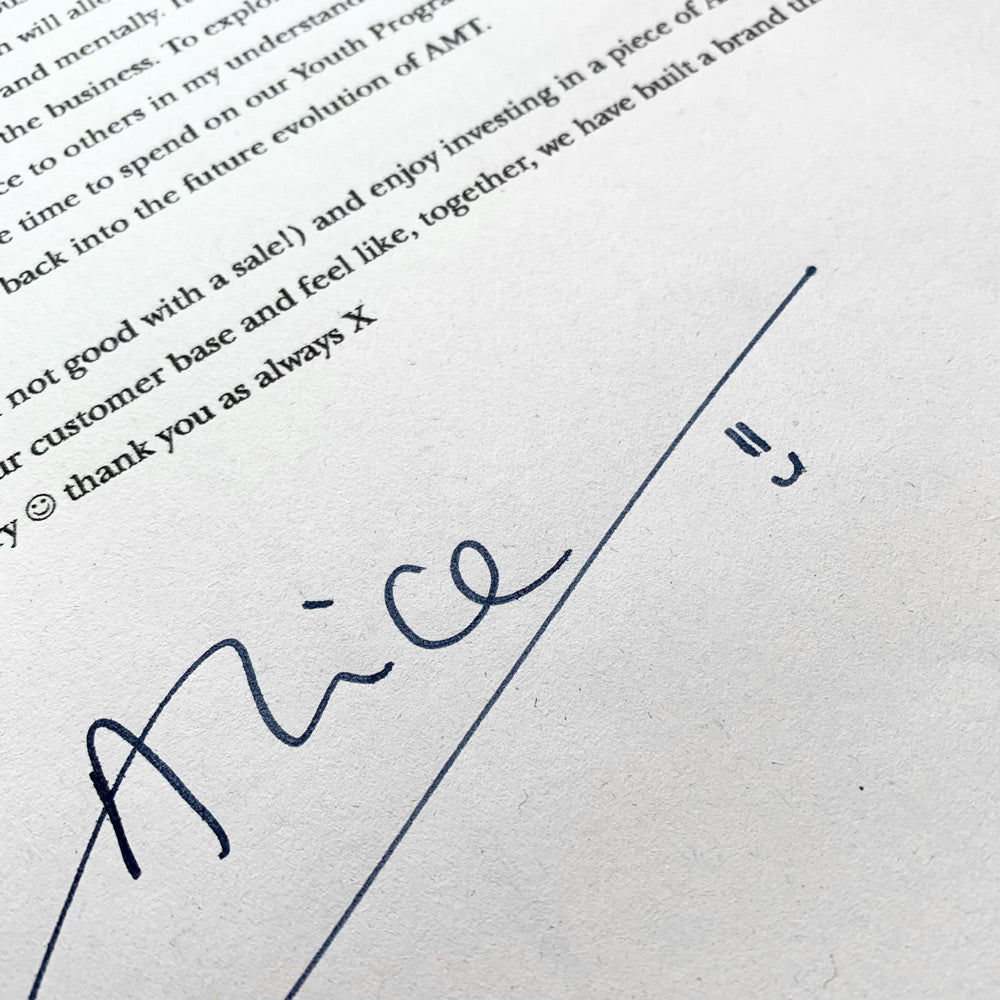 will
and mentally.
the business. To
to others in my
time to spend on our Youth
back into the future evolution of AMT.
not good with a sale!) and enjoy investing in a piece of
customer base and feel like, together, we have built a brand
☺ thank you as always X
Alice